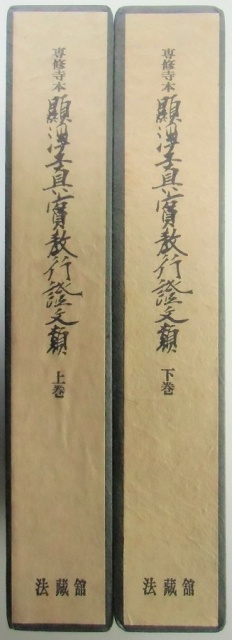 専修寺本
顯浄土真實教行證文類
上巻
法藏館
専修寺本
顯浄土真實教行證文類
下巻
法藏館